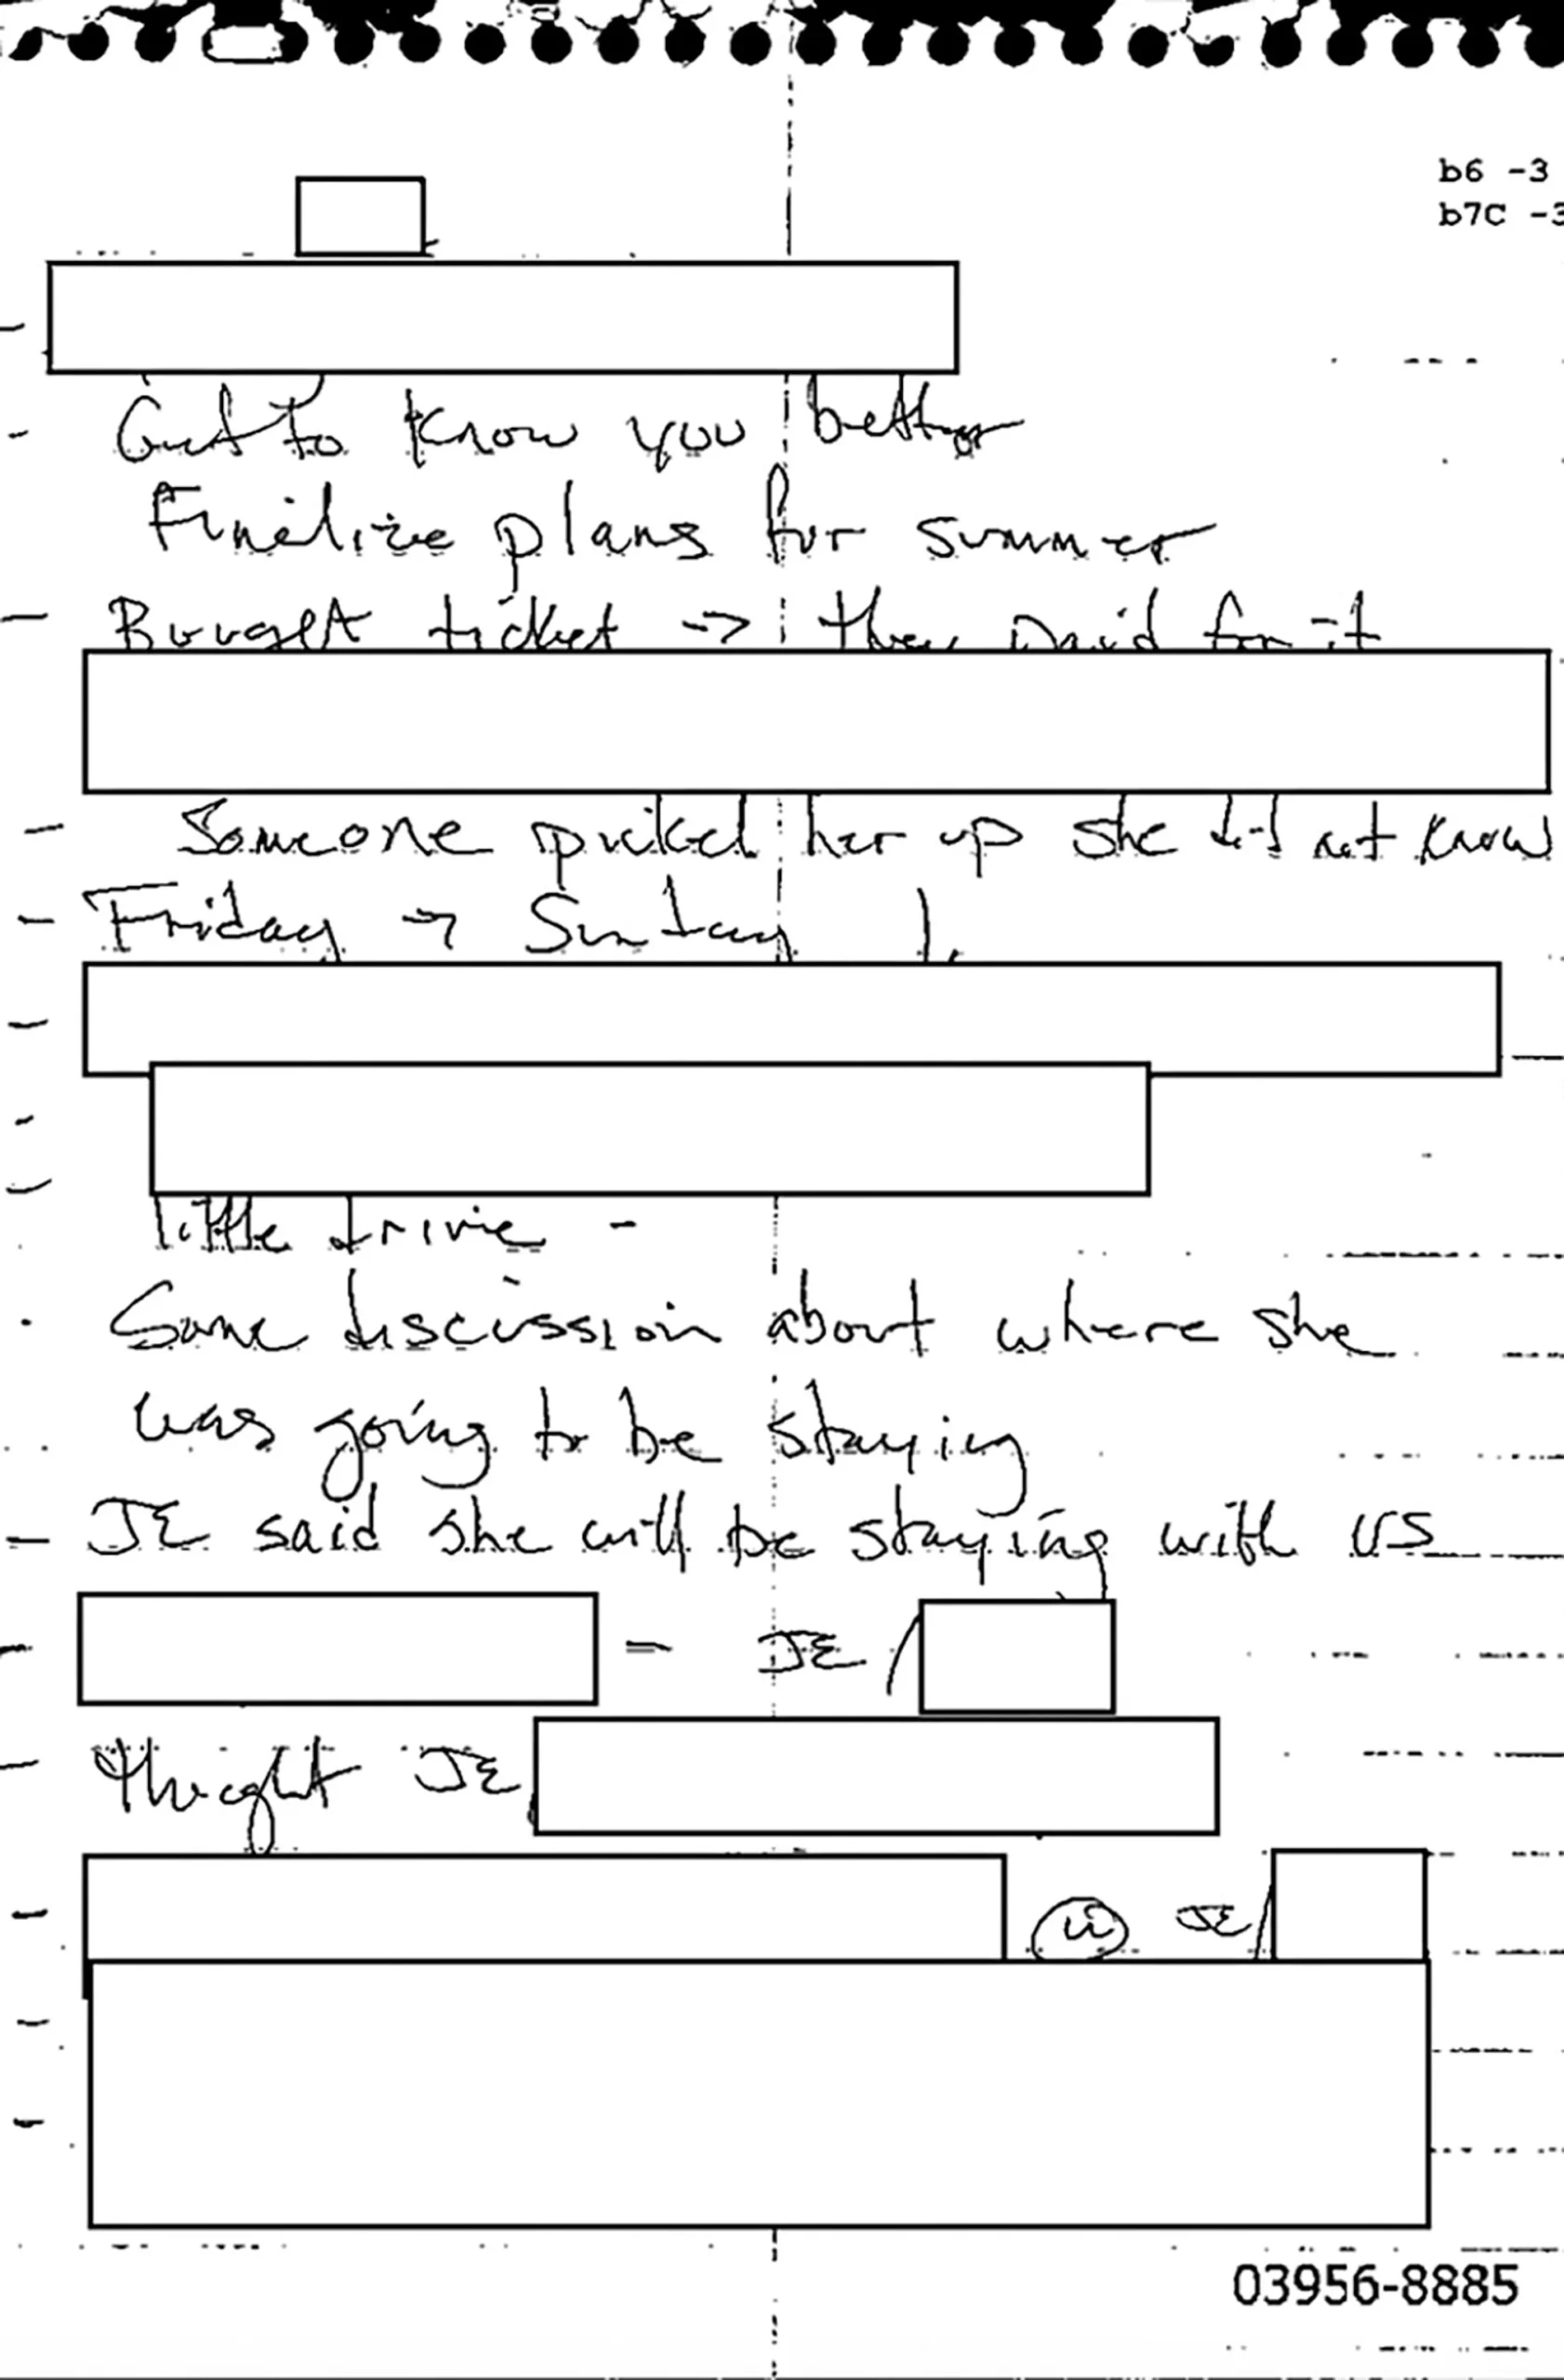 b6 -3
b7C -3
- Get to know you better
Finalize plans for summer
- Bought ticket -> they paid for it
- Someone picked her up she did not know
- Friday -> Sunday
little drive -
Some discussion about where she
was going to be staying
- JE said she will be staying with us
= JE /
- thought JE
- w JE/
03956-8885